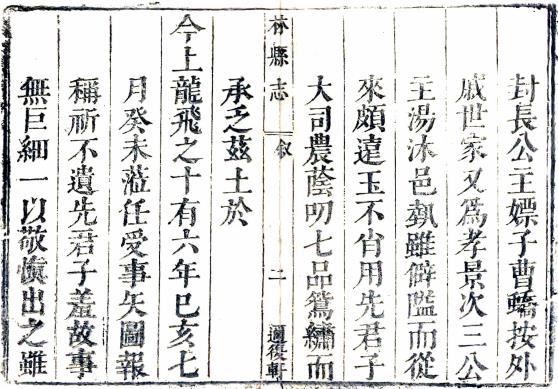 封長公主嫖子曹蟜按外
戚世家又爲孝景次三公
主湯沐邑埶雖僻隘而從
來頗遠玉不肖用先君子
大司農蔭叨七品篶繡而
承乏茲土於
林縣志 叙 二 邇後軒
今上龍飛之十有六年巳亥七
月癸未蒞任受事矢圖報
稱祈不遺先君子羞故事
無巨細一以敬愼出之雖